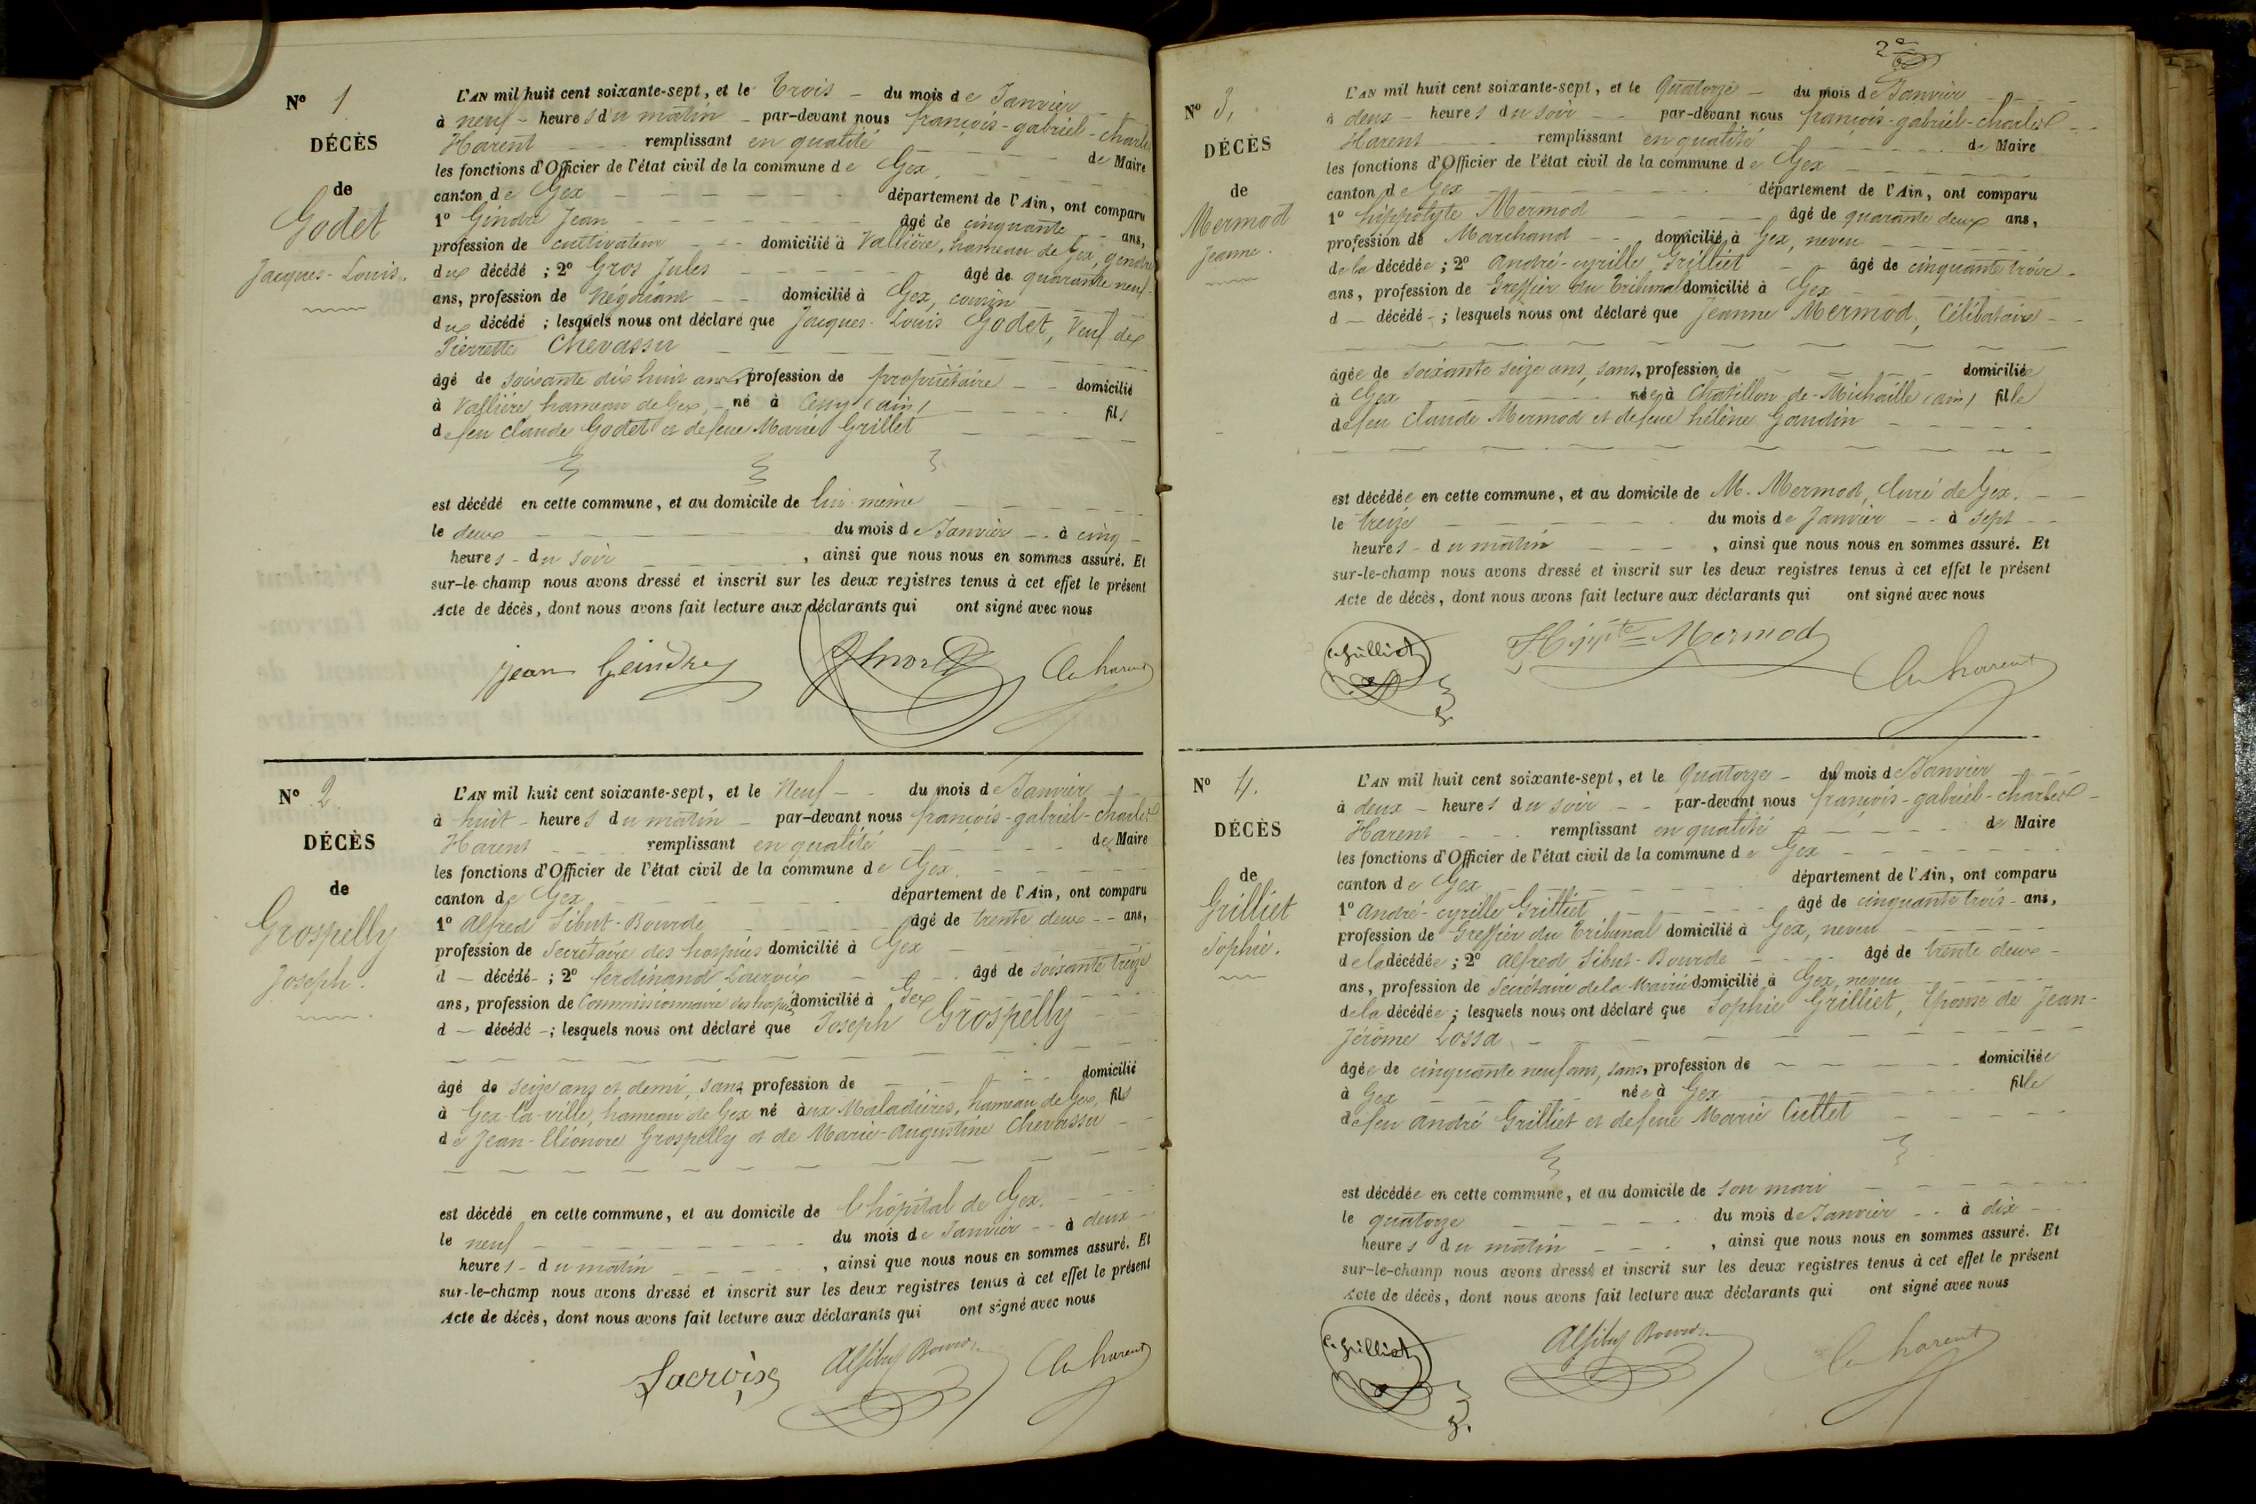 N° 1
DÉCÈS
de
Godet
Jacques-Louis.
L'AN mil huit cent soixante-sept, et le Trois - du mois de Janvier
à neuf - heures du matin - par-devant nous françois-gabriel-charles
Harent - - - remplissant en qualité - - - de Maire
les fonctions d'Officier de l'état civil de la commune de Gex
canton de Gex - - - département de l'Ain, ont comparu
1° Gindre Jean - - - âgé de cinquante - - ans,
profession de cultivateur - - - domicilié à Vallière, hameau de Gex, gendre
du décédé ; 2° Gros Jules - - - âgé de quarante neuf-
ans, profession de Négociant - - domicilié à Gex, cousin
du décédé ; lesquels nous ont déclaré que Jacques-Louis Godet, Veuf de
Pierrette Chevassu
âgé de soixante dix huit ans, profession de propriétaire - - domicilié
à Vallière hameau de Gex, - né à Cessy (ain) - - - fils
de feu Claude Godet et de feue Marie Grillet
est décédé en cette commune, et au domicile de lui-même
le deux - - - du mois de Janvier - - à cinq -
heures - du soir - - - , ainsi que nous nous en sommes assuré. Et
sur-le-champ nous avons dressé et inscrit sur les deux registres tenus à cet effet le présent
Acte de décès, dont nous avons fait lecture aux déclarants qui ont signé avec nous
Jean Geindre Ch harent
N° 2
DÉCÈS
de
Grospelly
Joseph.
L'AN mil huit cent soixante-sept, et le Neuf - - du mois de Janvier
à huit - heures du matin - par-devant nous françois-gabriel-charles
Harent - - - remplissant en qualité - - - de Maire
les fonctions d'Officier de l'état civil de la commune de Gex.
canton de Gex - - - département de l'Ain, ont comparu
1° Alfred Sibut-Bourde - - - âgé de trente deux - - ans,
profession de Secrétaire des hospices domicilié à Gex
d - décédé - ; 2° ferdinand Lacroix - - - âgé de soixante treize
ans, profession de Commissionnaire des hospices domicilié à Gex
d - décédé - ; lesquels nous ont déclaré que Joseph Grospelly
âgé de seize ans et demi, sans profession de - - - domicilié
à Gex-la-ville, hameau de Gex né aux Maladières, hameau de Gex, fils
de Jean-Eléonore Grospelly et de Marie-Augustine Chevassu
est décédé en cette commune, et au domicile de l'hôpital de Gex.
le neuf - - - du mois de Janvier - - à deux -
heures - du matin - - - , ainsi que nous nous en sommes assuré. Et
sur-le-champ nous avons dressé et inscrit sur les deux registres tenus à cet effet le présent
Acte de décès, dont nous avons fait lecture aux déclarants qui ont signé avec nous
Lacroix A Sibut Bourde Ch harent
2e
N° 3,
DÉCÈS
de
Mermod
Jeanne.
L'AN mil huit cent soixante-sept, et le Quatorze - du mois de Janvier
à deux - heures du soir - - par-devant nous françois-gabriel-charles
Harent - - - remplissant en qualité - - - de Maire
les fonctions d'Officier de l'état civil de la commune de Gex
canton de Gex - - - département de l'Ain, ont comparu
1° hippolyte Mermod - - - âgé de quarante deux ans,
profession de Marchand - - domicilié à Gex, neveu
de la décédée ; 2° André-cyrille Grilliet - - âgé de cinquante trois -
ans, profession de Greffier du Tribunal domicilié à Gex
d - décédé - ; lesquels nous ont déclaré que Jeanne Mermod, Célibataire - -
âgée de soixante seize ans, sans, profession de - - - domiciliée
à Gex - - - née à Châtillon-de-Michaille (ain) fille
de feu Claude Mermod et de feue hélène Gaudin
est décédée en cette commune, et au domicile de M. Mermod, Curé de Gex.
le treize - - - du mois de Janvier - - à sept - -
heures - du matin - - - , ainsi que nous nous en sommes assuré. Et
sur-le-champ nous avons dressé et inscrit sur les deux registres tenus à cet effet le présent
Acte de décès, dont nous avons fait lecture aux déclarants qui ont signé avec nous
C. Grilliet Hippte Mermod Ch harent
N° 4.
DÉCÈS
de
Grilliet
Sophie.
L'AN mil huit cent soixante-sept, et le Quatorze - du mois de Janvier
à deux - heures du soir - - par-devant nous françois-gabriel-charles -
Harent - - - remplissant en qualité - - - de Maire
les fonctions d'Officier de l'état civil de la commune de Gex
canton de Gex - - - département de l'Ain, ont comparu
1° André-cyrille Grilliet - - - âgé de cinquante trois - ans,
profession de Greffier du Tribunal domicilié à Gex, neveu
de la décédée ; 2° Alfred Sibut-Bourde - - - âgé de trente deux -
ans, profession de Secrétaire de la Mairie domicilié à Gex, neveu
de la décédée ; lesquels nous ont déclaré que Sophie Grilliet, Epouse de Jean-
Jérôme Lossa
âgée de cinquante neuf ans, sans, profession de - - - domiciliée
à Gex - - - née à Gex - - - fille
de feu André Grilliet et de feue Marie Cullet
est décédée en cette commune, et au domicile de son mari
le quatorze - - - du mois de Janvier - - à dix - -
heures du matin - - - , ainsi que nous nous en sommes assuré. Et
sur-le-champ nous avons dressé et inscrit sur les deux registres tenus à cet effet le présent
Acte de décès, dont nous avons fait lecture aux déclarants qui ont signé avec nous
C. Grilliet A Sibut Bourde Ch harent